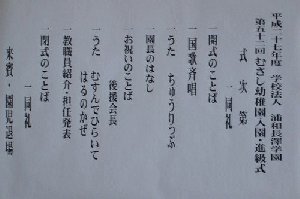 平成二十七年度 学校法人 浦和長澤学園
第五十二回 むさし幼稚園入園・進級式
式次第
一同礼
一開式のことば
一国歌斉唱
一うた ちゅうりっぷ
園長のはなし
お祝いのことば
後援会長
一うた むすんでひらいて
はるのかぜ
教職員紹介・担任発表
一閉式のことば
一同礼
来賓・園児退場